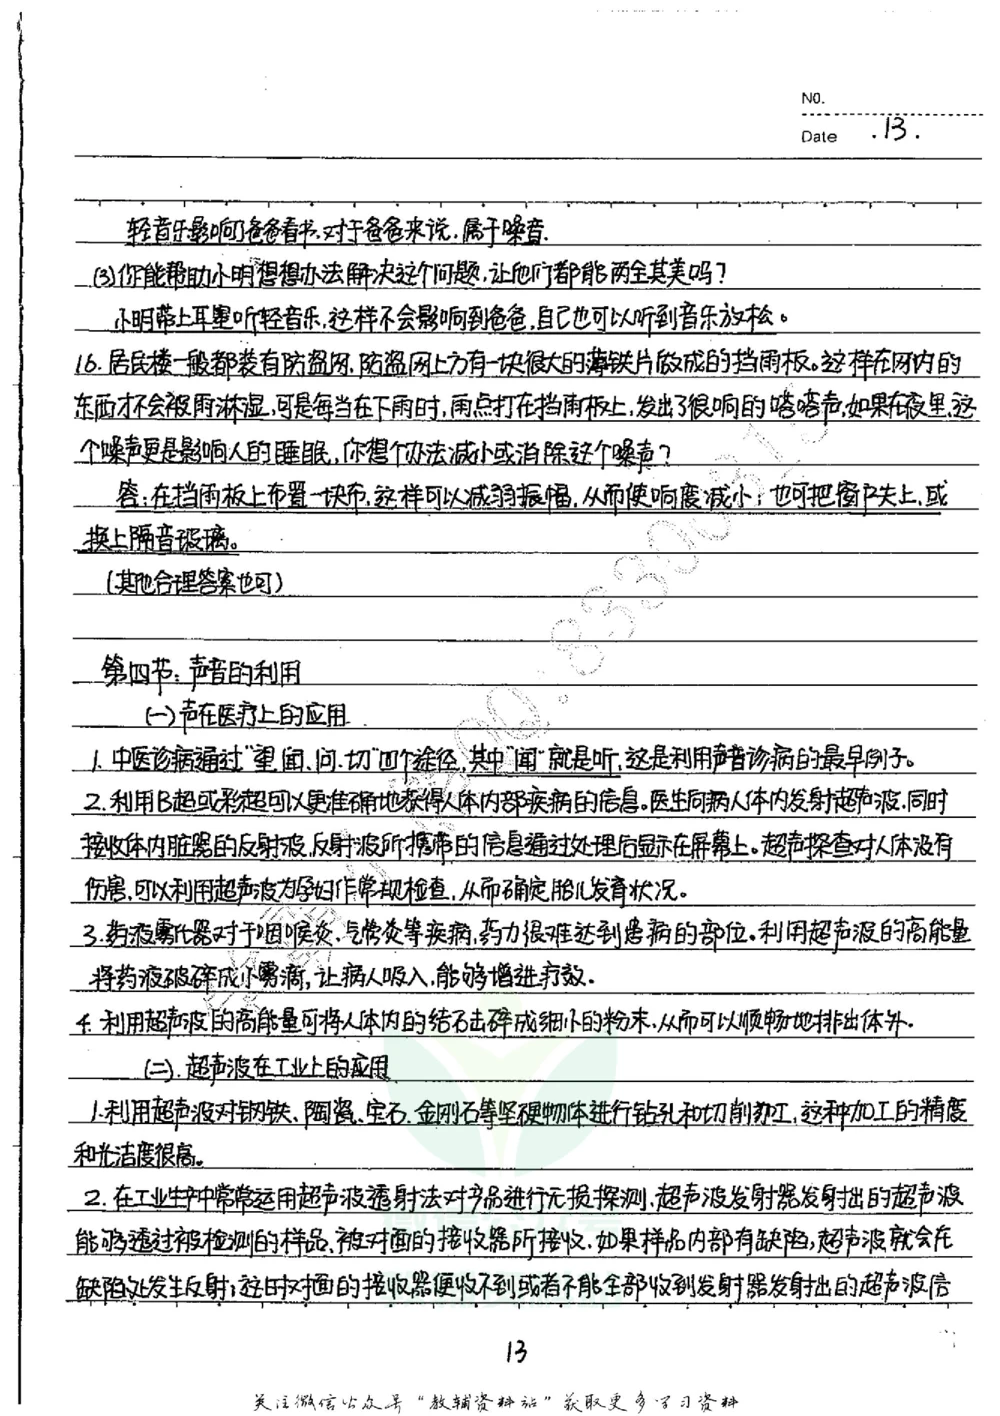 NO.
Date .13.
轻音乐影响了爸爸看书、对于爸爸来说，属于噪音.
(3)你能帮助小明想想办法解决这个问题，让他们都能两全其美吗？
小明带上耳塞听轻音乐，这样不会影响到爸爸，自己也可以听到音乐放松。
16.居民楼一般都装有防盗网，防盗网上方有一块很大的薄铁片做成的挡雨板。这样在网内的
东西才不会被雨淋湿，可是每当在下雨时，雨点打在挡雨板上，发出了很响的嗒嗒声，如果在夜里，这
个噪声更是影响人的睡眠，你想个办法减小或消除这个噪声？
答：在挡雨板上布置一块布，这样可以减弱振幅，从而使响度减小；也可把窗户关上，或
换上隔音玻璃。
(其他合理答案也可)
第四节：声音的利用
(一)声在医疗上的应用
1.中医诊病通过“望、闻、问、切”四个途径，其中“闻”就是听，这是利用声音诊病的最早例子。
2.利用B超或彩超可以更准确地获得人体内部疾病的信息。医生向病人体内发射超声波，同时
接收体内脏器的反射波，反射波所携带的信息通过处理后显示在屏幕上。超声探查对人体没有
伤害，可以利用超声波为孕妇作常规检查，从而确定胎儿发育状况。
3.药液雾化器对于咽喉炎、气管炎等疾病，药力很难达到患病的部位。利用超声波的高能量
将药液破碎成小雾滴，让病人吸入，能够增进疗效。
4.利用超声波的高能量可将人体内的结石击碎成细小的粉末，从而可以顺畅地排出体外.
(二).超声波在工业上的应用
1.利用超声波对钢铁、陶瓷、宝石、金刚石等坚硬物体进行钻孔和切削加工，这种加工的精度
和光洁度很高。
2.在工业生产中常常运用超声波透射法对产品进行无损探测，超声波发射器发射出的超声波
能够透过被检测的样品、被对面的接收器所接收，如果样品内部有缺陷，超声波就会在
缺陷处发生反射；这时对面的接收器便收不到或者不能全部收到发射器发射出的超声波信
13
关注微信公众号“教辅资料站”获取更多学习资料